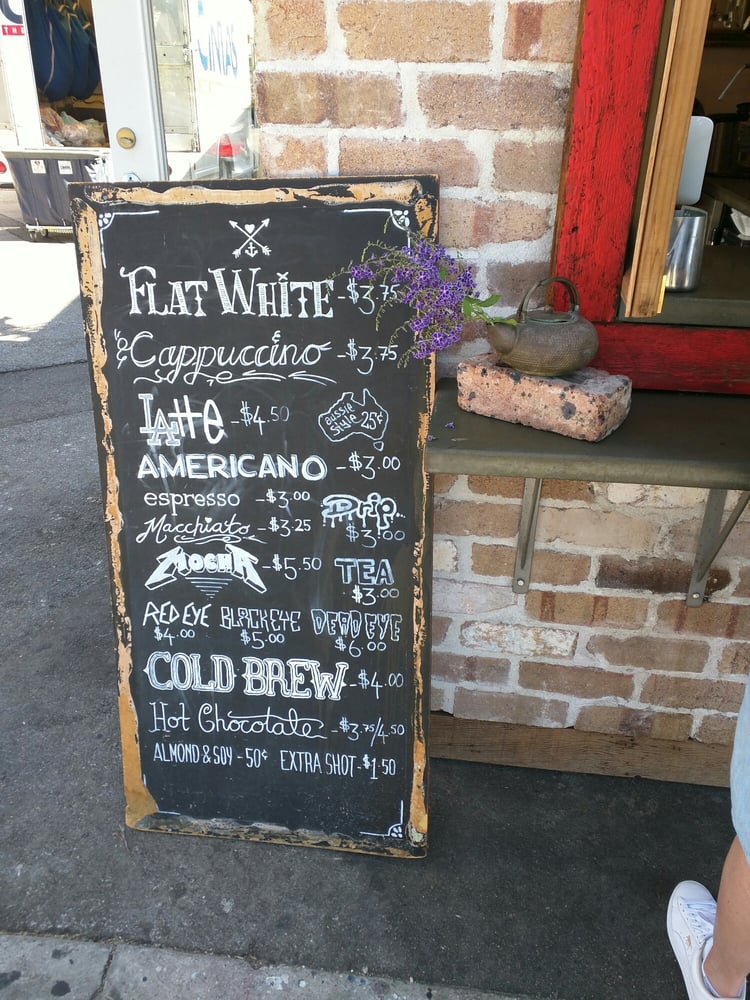 CINTAS
FLAT WHITE -$3.75
Cappuccino -$3.75
LAtte -$4.50
aussie style 25¢
AMERICANO -$3.00
espresso -$3.00
Drip..
$3.00
Macchiato -$3.25
MOCHA -$5.50
TEA
$3.00
RED EYE BLACK EYE DEAD EYE
$4.00 $5.00 $6.00
COLD BREW -$4.00
Hot Chocolate -$3.75/4.50
ALMOND & SOY - 50¢ EXTRA SHOT - $1.50